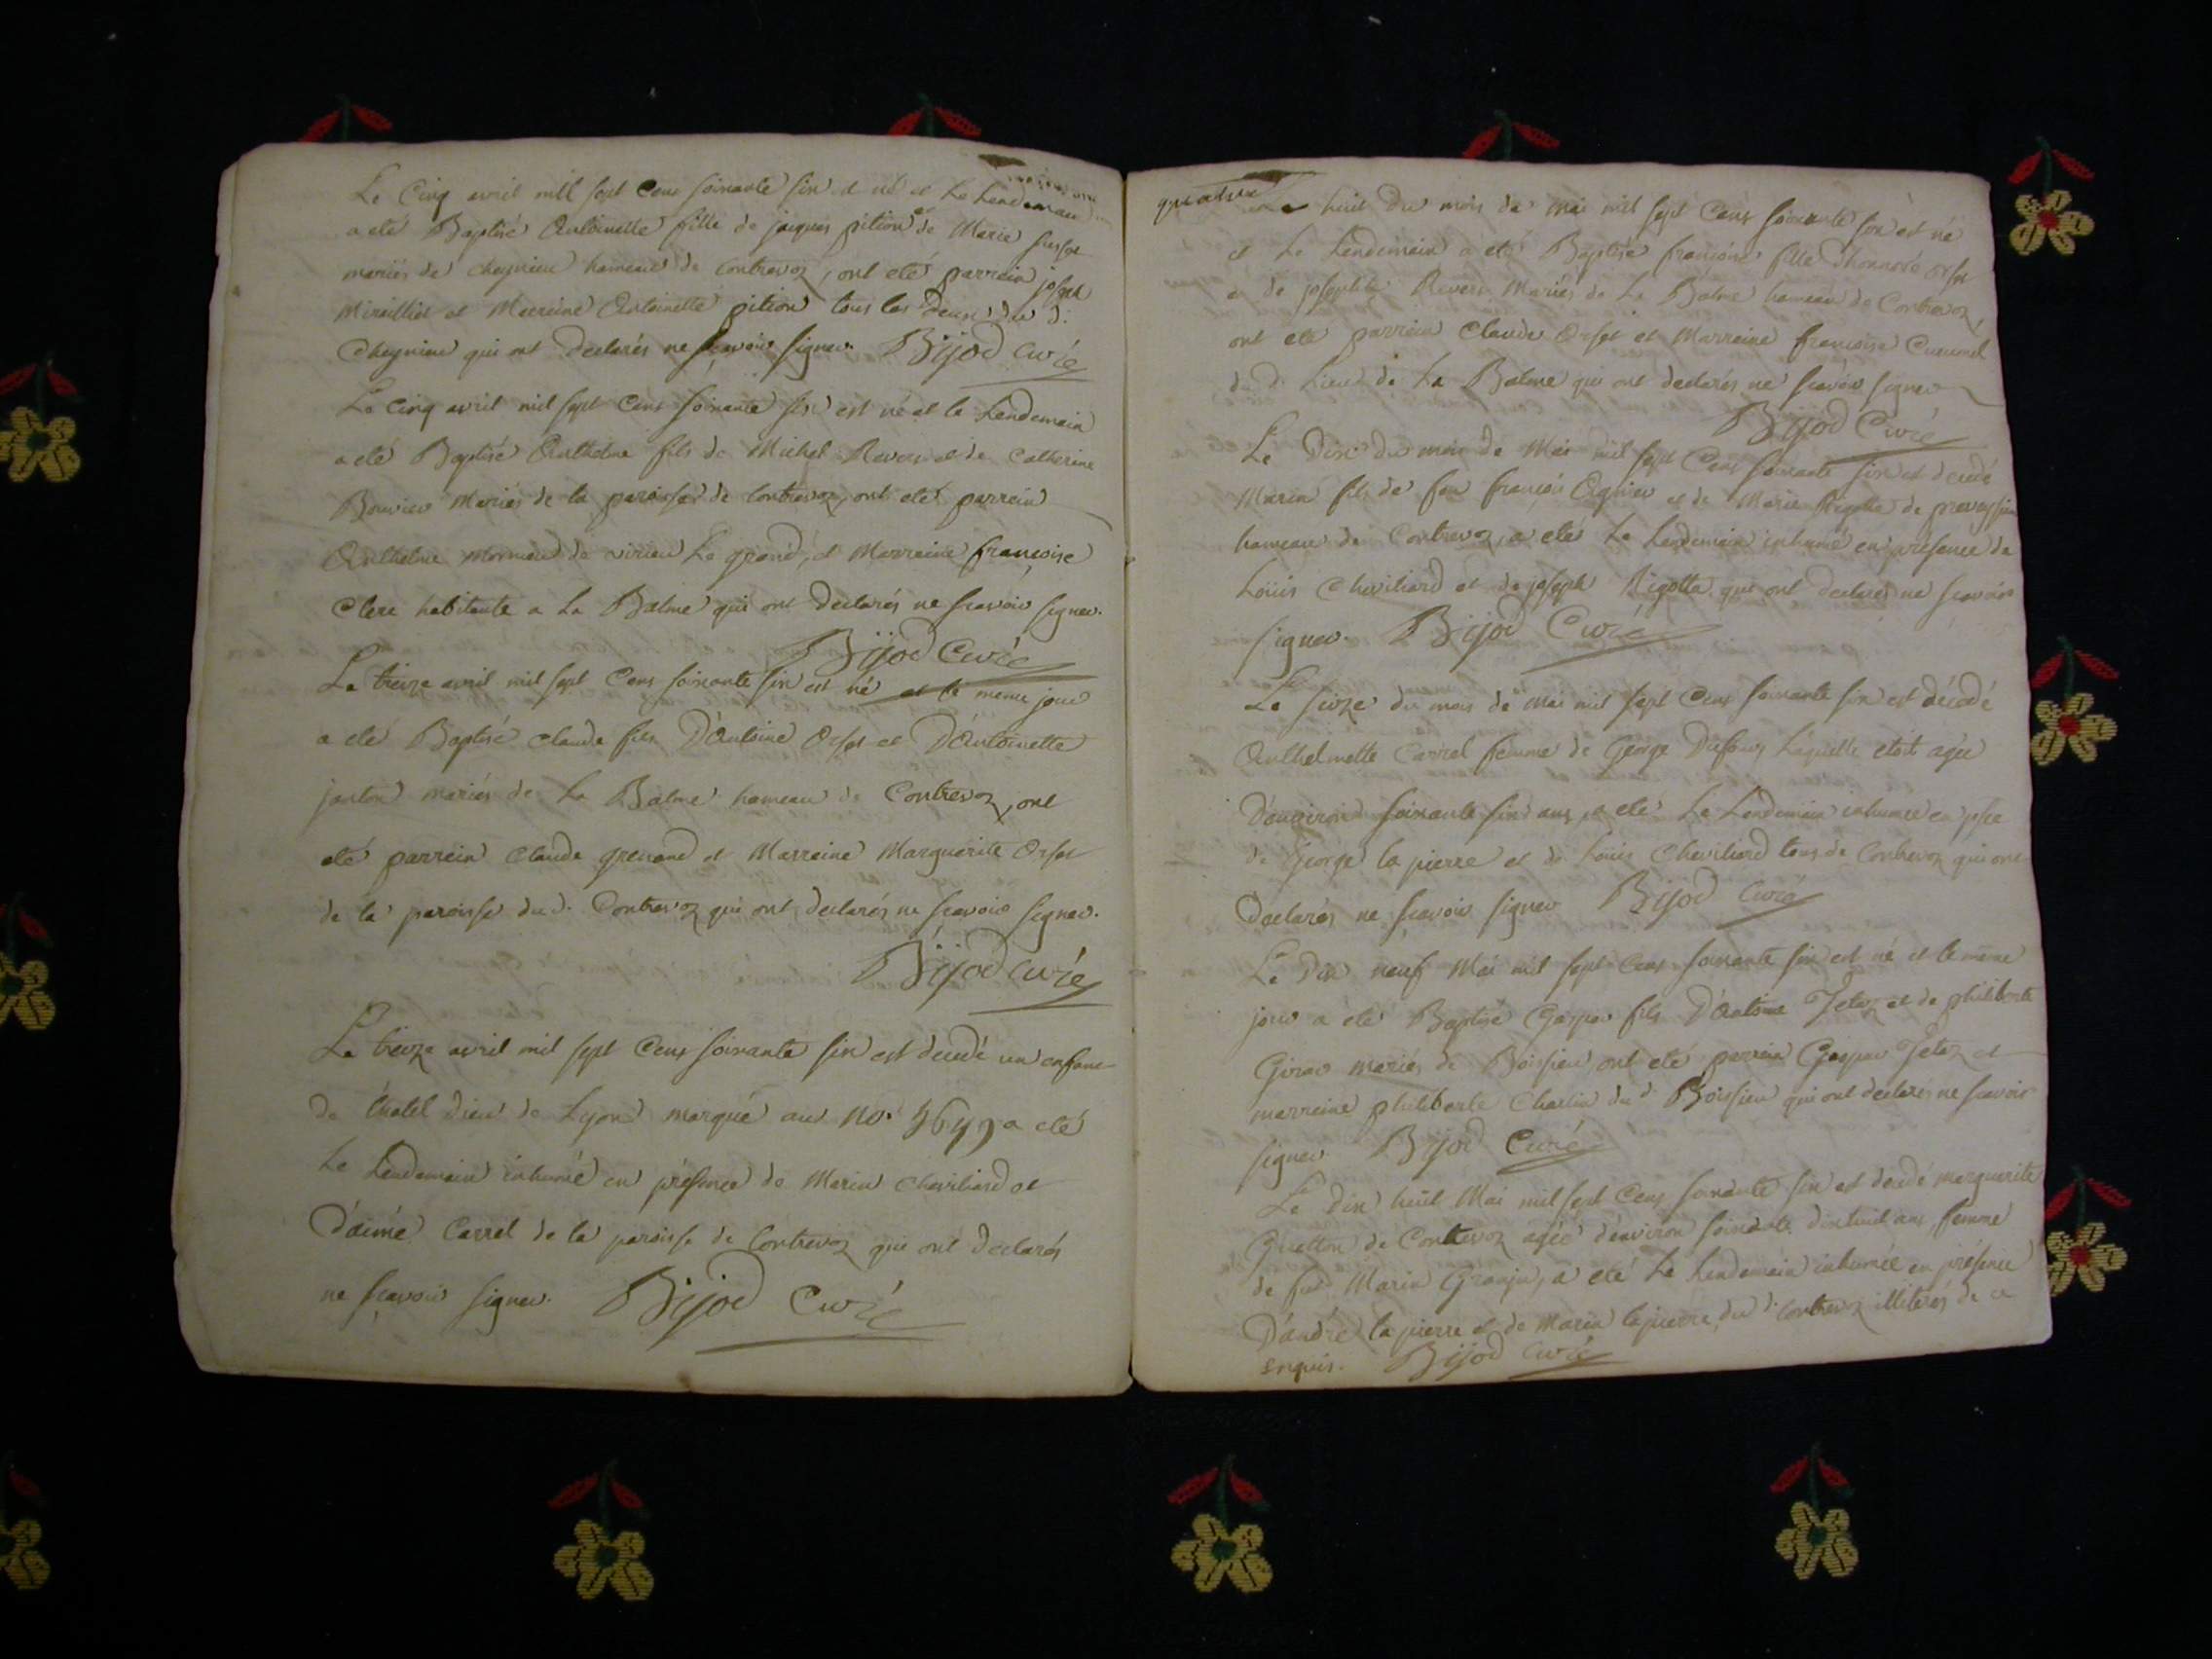 Le Cinq avril mill sept Cens soixante six est né et Le Lendemain
a eté Baptisé Antoinette fille de jaques pition et de Marie
mariés de cheynieu hameau de Contrevoz, ont eté parrein
et Marreine Antoinette pition tous les deux du d.
Cheynieu qui ont declarés ne sçavoir signer. Bijod Curé
Le Cinq avril mil sept Cens soixante six est né et le Lendemain
a eté Baptisé Anthelme fils de Michel Revers et de Catherine
Bouvier Mariés de la paroisse de Contrevoz, ont eté parrein
Anthelme de virieu Le grand, et Marreine françoise
Clerc habitante a La Balme qui ont declarés ne sçavoir signer.
Bijod Curé
Le treize avril mil sept Cens soixante six est né et le meme jour
a eté Baptisé Claude fils D'Antoine Orset et D'Antoinette
mariés de La Balme hameau de Contrevoz, ont
eté parrein Claude grenand et Marreine Marguerite Orset
de la paroisse du d. Contrevoz qui ont declarés ne sçavoir signer.
Bijod Curé
Le treize avril mil sept Cens soixante six est decedé un enfant
de L'hotel Dieu de Lyon marqué au No. a eté
Le Lendemain inhumé en présence de Marin Cheviliard et
D'aimé Carrel de la paroisse de Contrevoz qui ont declarés
ne sçavoir signer. Bijod Curé
quatre
Le huit du mois de Mai mil sept Cens soixante six est né
et Le Lendemain a eté Baptisé françoise fille d'honnoré Orset
et de Revers Mariés de La Balme hameau de Contrevoz,
ont eté parrein Claude Orset et Marreine françoise
du d. Lieu de La Balme qui ont declarés ne sçavoir signer
Bijod Curé
Le Dix du mois de Mai mil sept Cens soixante six est decedé
Marin fils de feu françois et de Marie de
hameau de Contrevoz, a eté Le Lendemain inhumé en présence de
Loüis Cheviliard et de joseph Rigotta qui ont declarés ne sçavoir
signer. Bijod Curé
Le seize du mois de Mai mil sept Cens soixante six est décedé
Anthelmette Carrel femme de George Dufour Laquelle etoit agée
D'environ soixante six ans, a eté Le Lendemain inhumée en pñce
de George la pierre et de Loüis Cheviliard tous de Contrevoz qui ont
Declarés ne sçavoir signer Bijod Curé
Le Dix neuf Mai mil sept Cens soixante six est né et le même
jour a été Baptisé Gaspar fils D'Antoine Jetoz et de philiberte
Girar mariés de Boissieu, ont eté parrein Gaspar Jetoz et
marreine philiberte Charlin du d. Boissieu qui ont declarés ne sçavoir
signer Bijod Curé
Le Dix huit Mai mil sept Cens soixante six est decedé marguerite
de Contrevoz agée d'environ soixante dixhuit ans, femme
de feu Marin, a eté Le Lendemain inhumée en présence
D'andré la pierre et de Marin lapierre du d. Contrevoz illiterés de ce
enquis. Bijod Curé